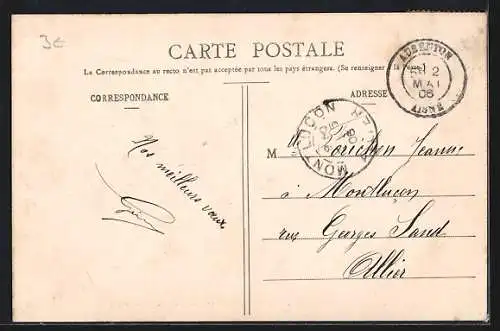 3€
CARTE POSTALE
La Correspondance au recto n'est pas acceptée par tous les pays étrangers. (Se renseigner
CORRESPONDANCE
ADRESSE
AUBENTON
2
MAI
06
AISNE
MONTLUÇON
ALLIER
Nos meilleurs vœux
M lle Jeanne
à Montluçon
rue Georges Sand
Allier